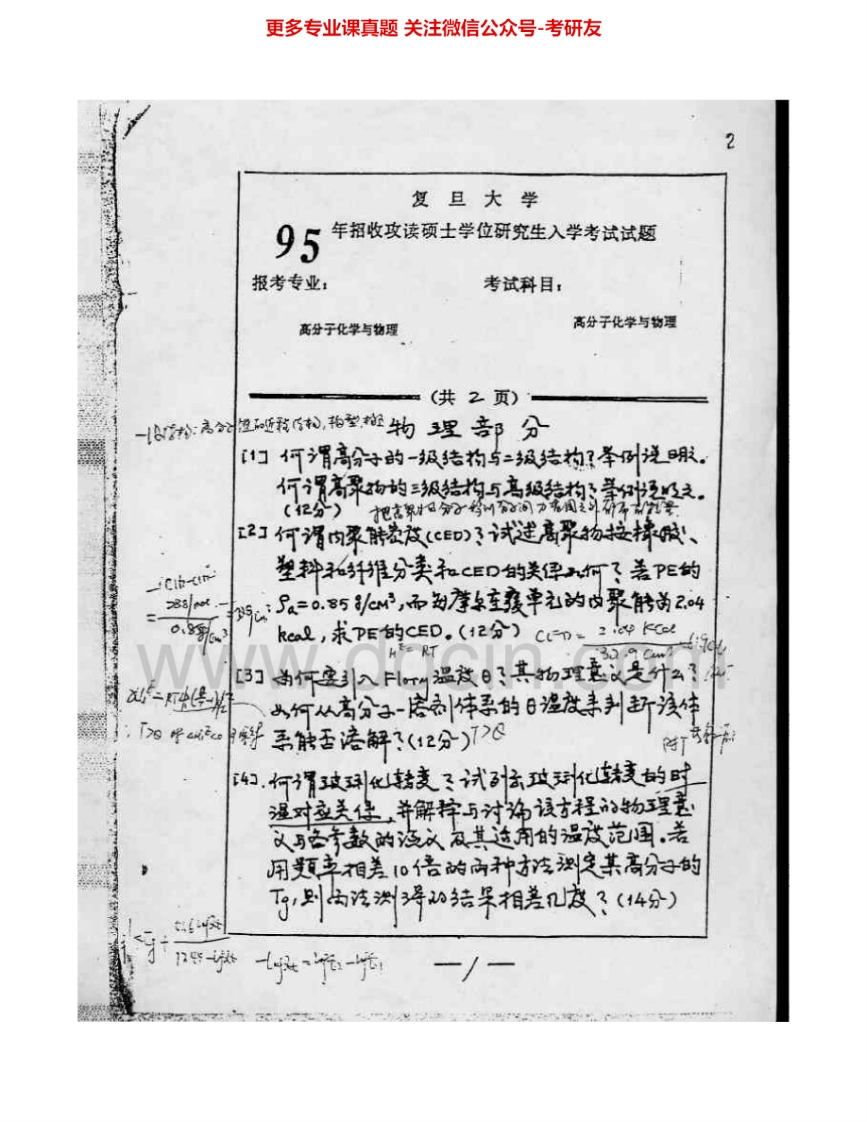 更多专业课真题 关注微信公众号-考研友
2
复旦大学
95 年招收攻读硕士学位研究生入学考试试题
报考专业： 考试科目：
高分子化学与物理 高分子化学与物理
（共 2 页）
物理部分
[1] 何谓高分子的一级结构与二级结构？举例说明之。
何谓高聚物的三级结构与高级结构？举例说明之。
（12分）
[2] 何谓内聚能密度(CED)？试述高聚物按橡胶、
塑料和纤维分类和CED的关系如何？若PE的
ρa=0.85g/cm³，而每摩尔重复单元的内聚能为2.04
kcal，求PE的CED。（12分）
[3] 为何要引入Flory温度θ？其物理意义是什么？
如何从高分子-溶剂体系的θ温度来判断该体
系能否溶解？（12分） T>θ
[4]. 何谓玻璃化转变？试列出玻璃化转变的时
温对应关系，并解释与讨论该方程的物理意
义与各参数的涵义及其适用的温度范围。若
用频率相差10倍的两种方法测定某高分子的
Tg，则两法测得的结果相差几度？（14分）
—1—
www.docin.com